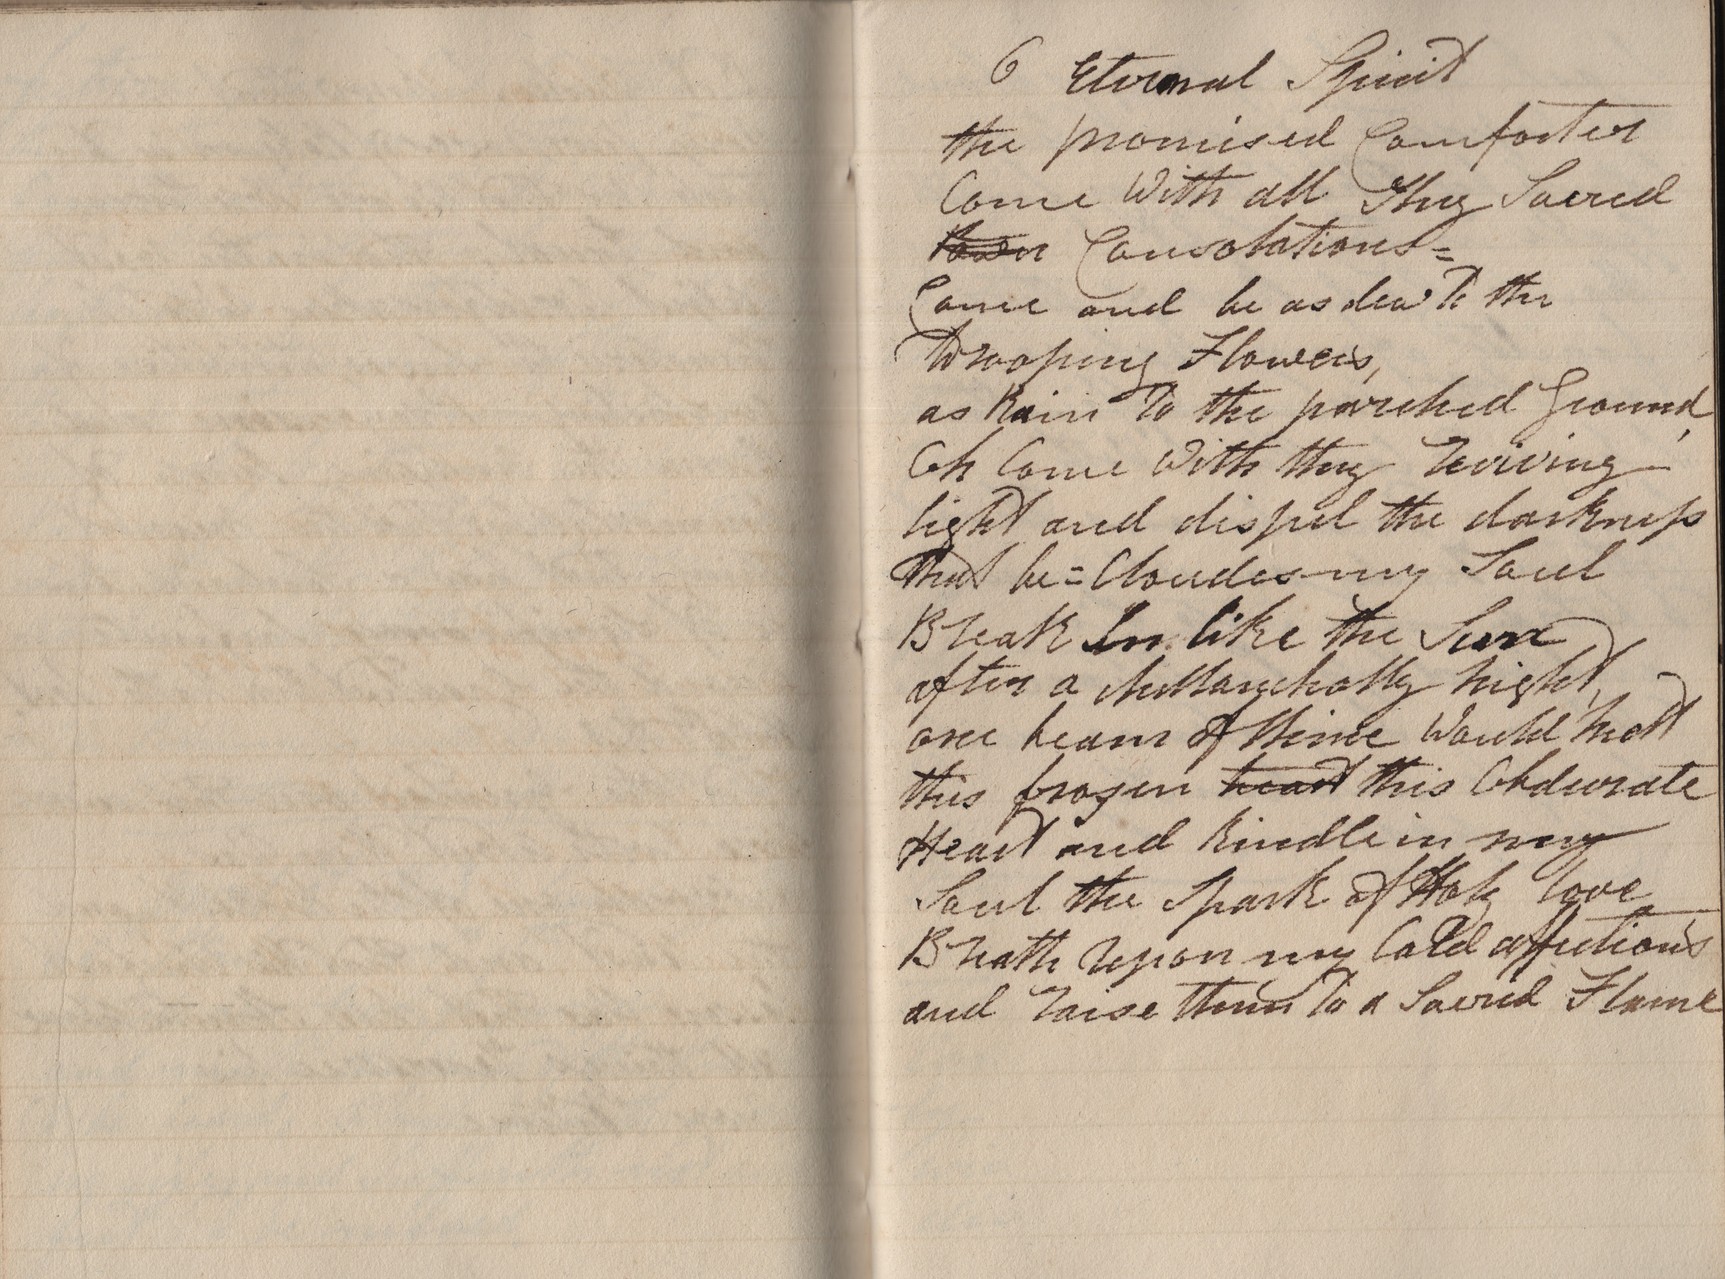 6 Eternal Spirit
the promised Comforter
Come With all Thy Sacred
Consolations=
Come and be as dew to the
Drooping Flowers,
as Rain to the parched Ground,
Oh Come With thy reviving
light and dispel the darkness
that be=Cloudes my Soul
Break In like the Sun
after a Mellancholly night,
one beam of thine Would melt
this frozen heart this Obdurate
Heart and kindle in my
Soul the Spark of Holy love
Breath upon my Cold affections
and raise them to a Sacred Flame